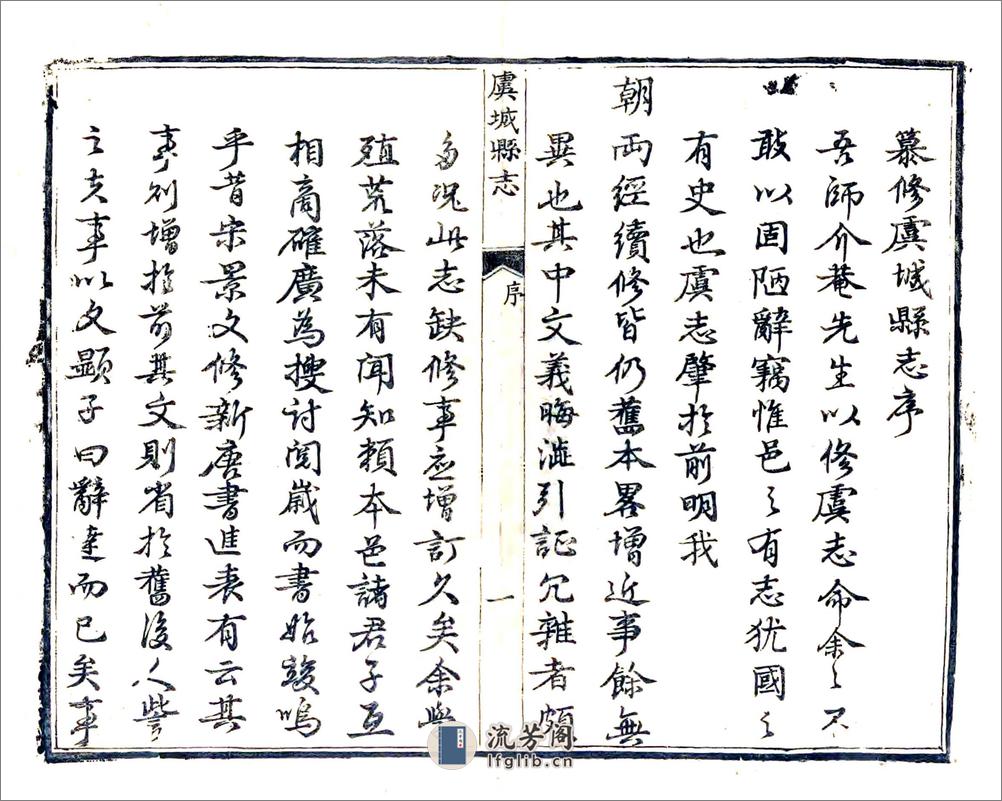 纂修虞城縣志序
吾師介菴先生以修虞志命余〻不
敢以固陋辭竊惟邑〻有志犹國〻
有史也虞志肇於前明我
朝兩經續修皆仍舊本畧增近事餘無
異也其中文義晦澁引証冗雜者頗
虞城縣志
序
一
多况此志缺修事应增訂久矣余學
殖荒落未有聞知賴本邑諸君子互
相商確廣為搜讨閲嵗而書始竣嗚
乎昔宋景文修新唐書進表有云其
事則增於前其文則省於舊後人訾
之夫事以文顕子曰辭達而已矣事
流芳阁
lfglib.cn